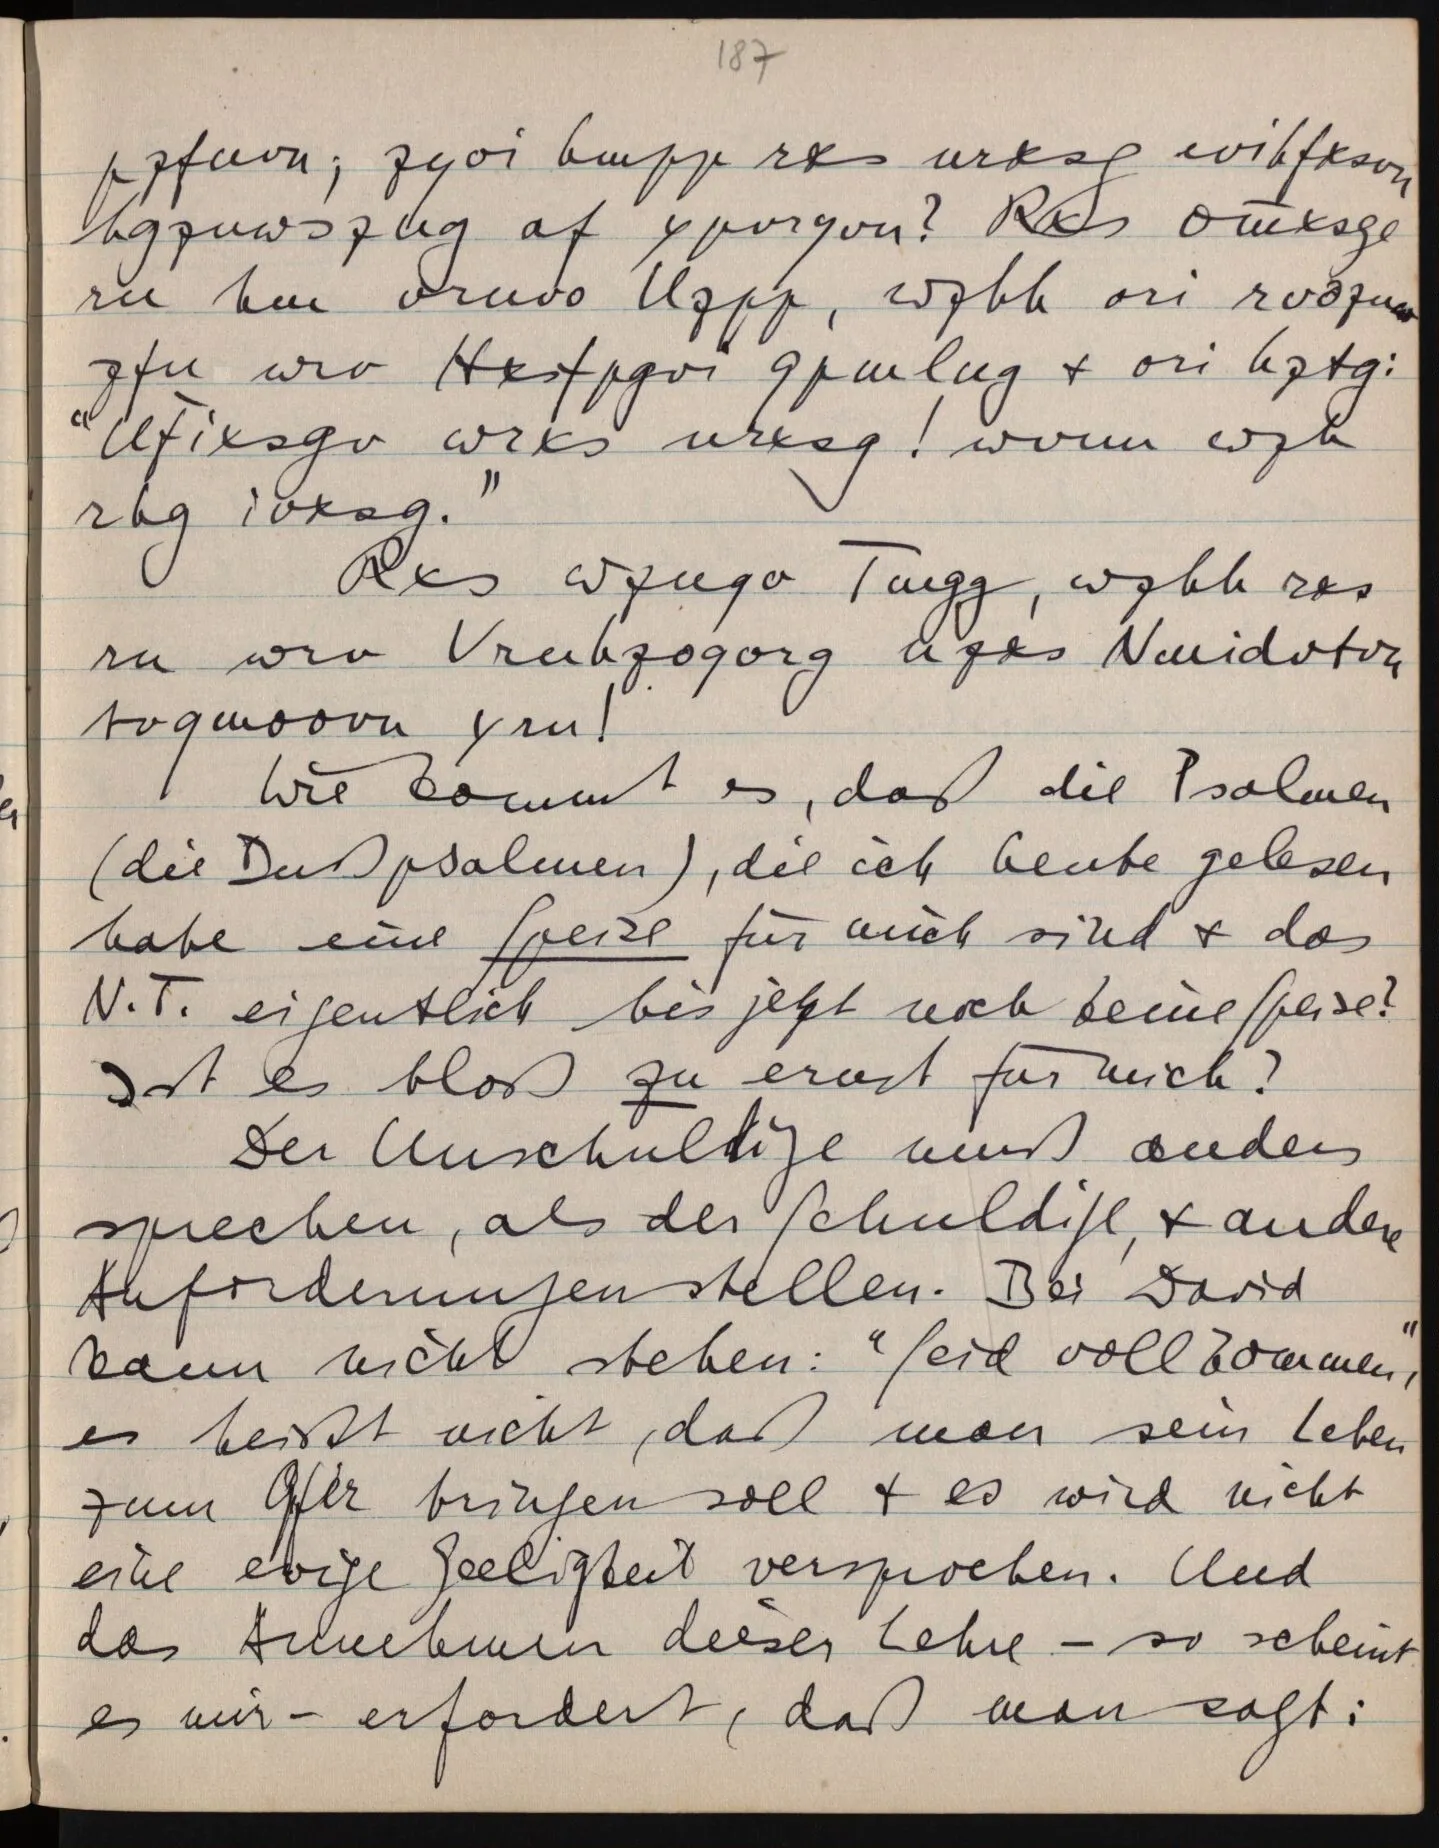 pzfuvn; zyvi hmpp rxs nrxsg evihfxsvn
hgznwszug af ypvryvn? Rxs öm̈xsgv
rn hm vrnvo Uzpp, wzhh vi rvoznw
zfu wrv Hxsfpgvi qpmlug & vi hztg:
"Uf̈ixsgv wrxs nrxsg! wvnn wzh
rhg ivxsg."
Rxs wznqv Tmgg, wzhh rxs
rn wrv Vrnhzoqvrg nzxs Nmidvtvn
tvqmoovn yrn!
Wie kommt es, daß die Psalmen
(die Bußpsalmen), die ich heute gelesen
habe eine Speise für mich sind & das
N.T. eigentlich bis jetzt noch keine Speise?
Ist es bloß zu ernst für mich?
Der Unschuldige muß anders
sprechen, als der Schuldige, & andere
Anforderungen stellen. Bei David
kann nicht stehen: "Seid vollkommen",
es heißt nicht, daß man sein Leben
zum Opfer bringen soll & es wird nicht
eine ewige Seeligkeit versprochen. Und
das Annehmen dieser Lehre – so scheint
es mir – erfordert, daß man sagt:
187